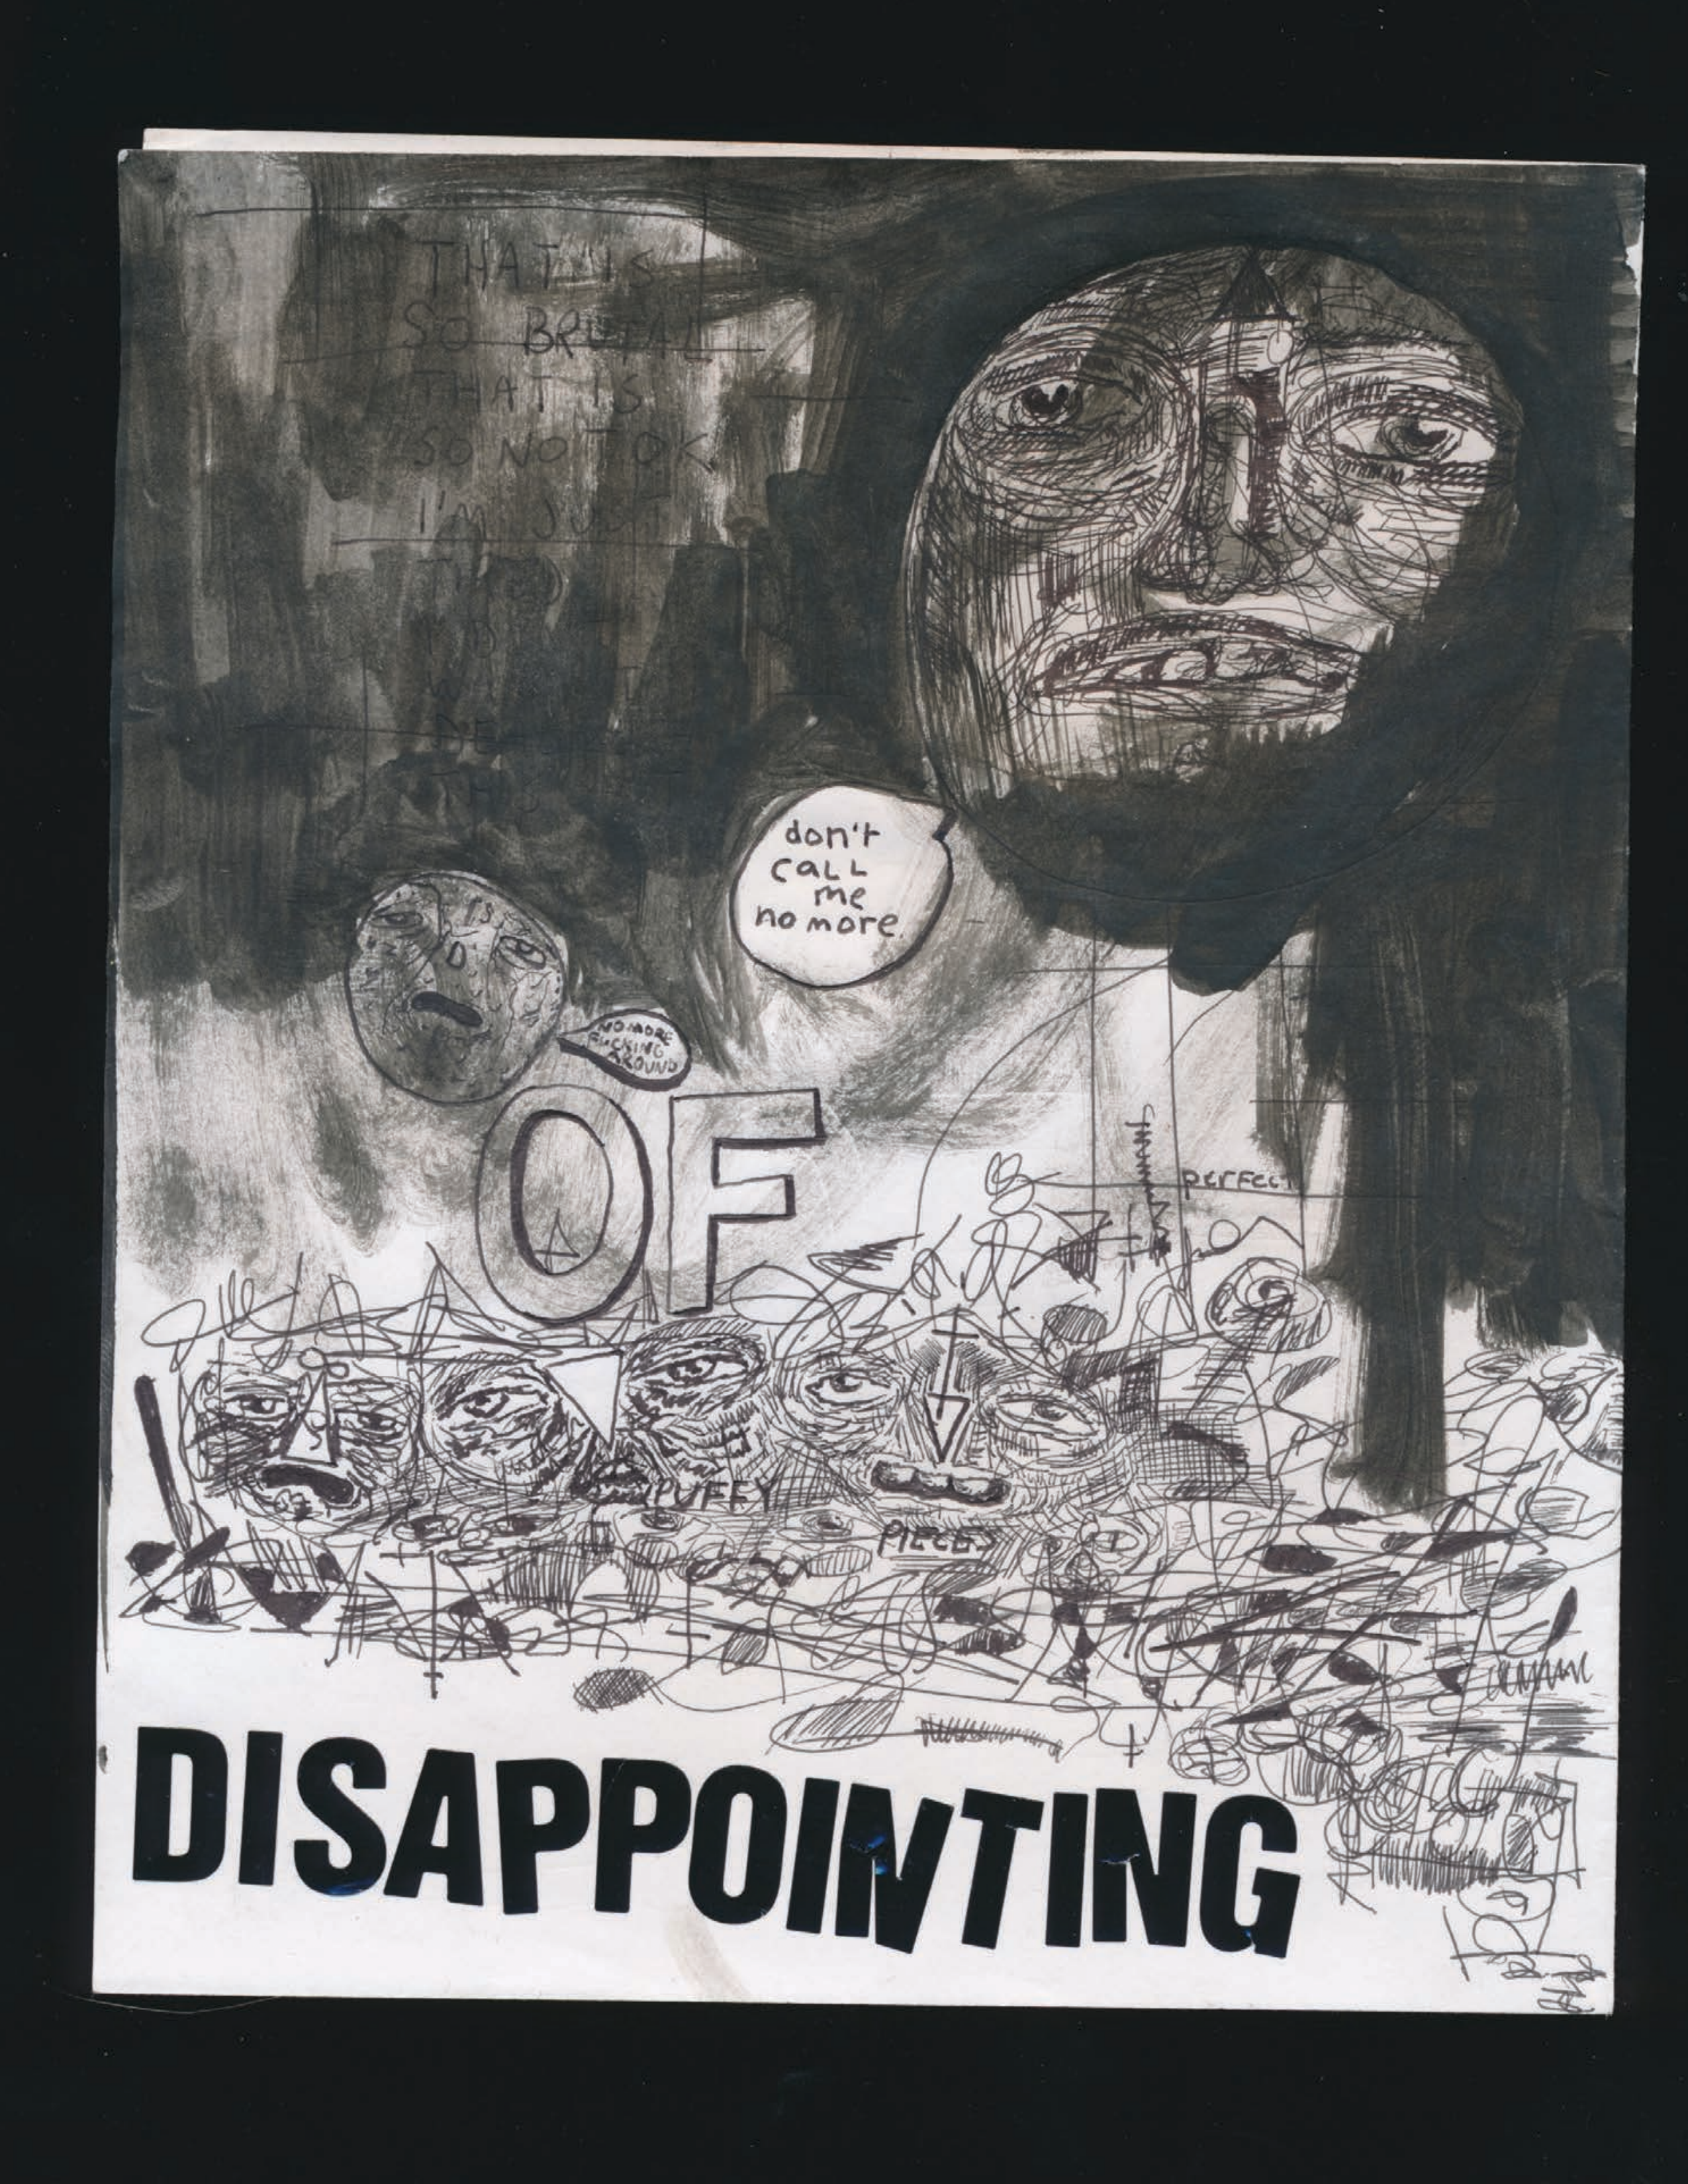 THAT IS
SO BRUTAL
THAT IS
SO NOT OK
I'M JUST
don't
call
me
no more.
NO MORE
FUCKING
AROUND
OF
perfect
PUFFY
PIECES
DISAPPOINTING